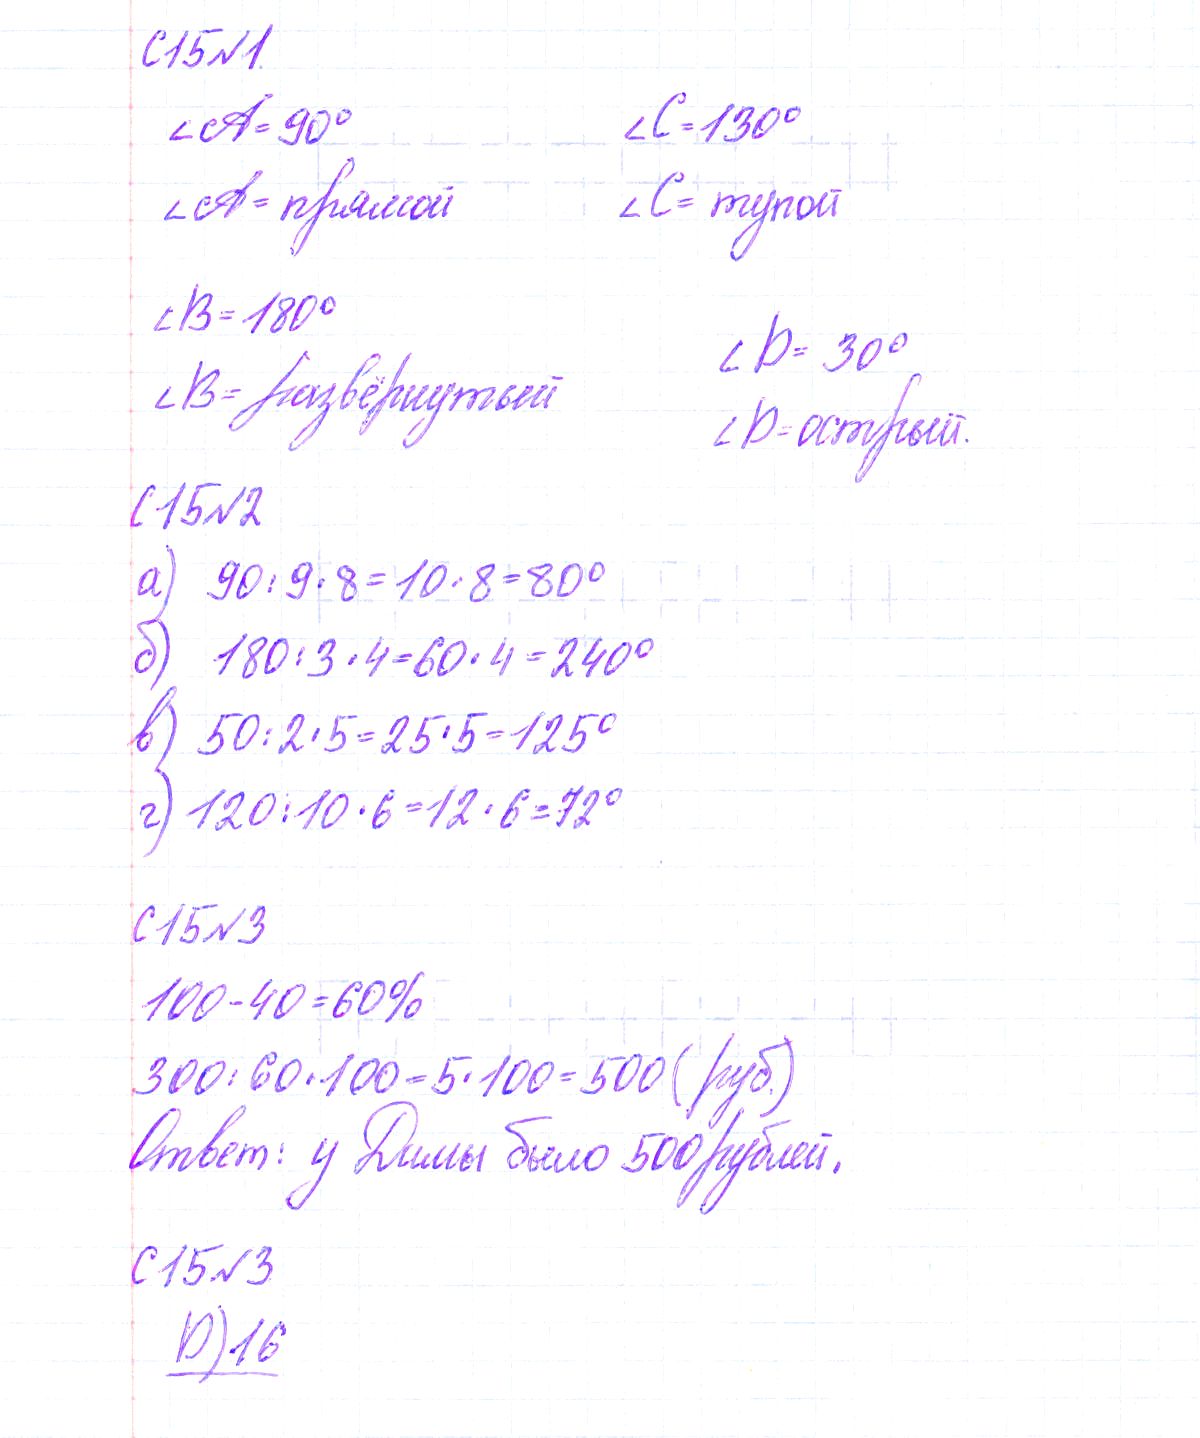 С15№1
∠A = 90°
∠A = прямой
∠C = 130°
∠C = тупой
∠B = 180°
∠B = развёрнутый
∠D = 30°
∠D = острый.
С15№2
а) 90:9·8=10·8=80°
б) 180:3·4=60·4=240°
в) 50:2·5=25·5=125°
г) 120:10·6=12·6=72°
С15№3
100-40=60%
300:60·100=5·100=500(руб.)
Ответ: у Димы было 500 рублей.
С15№3
D) 16